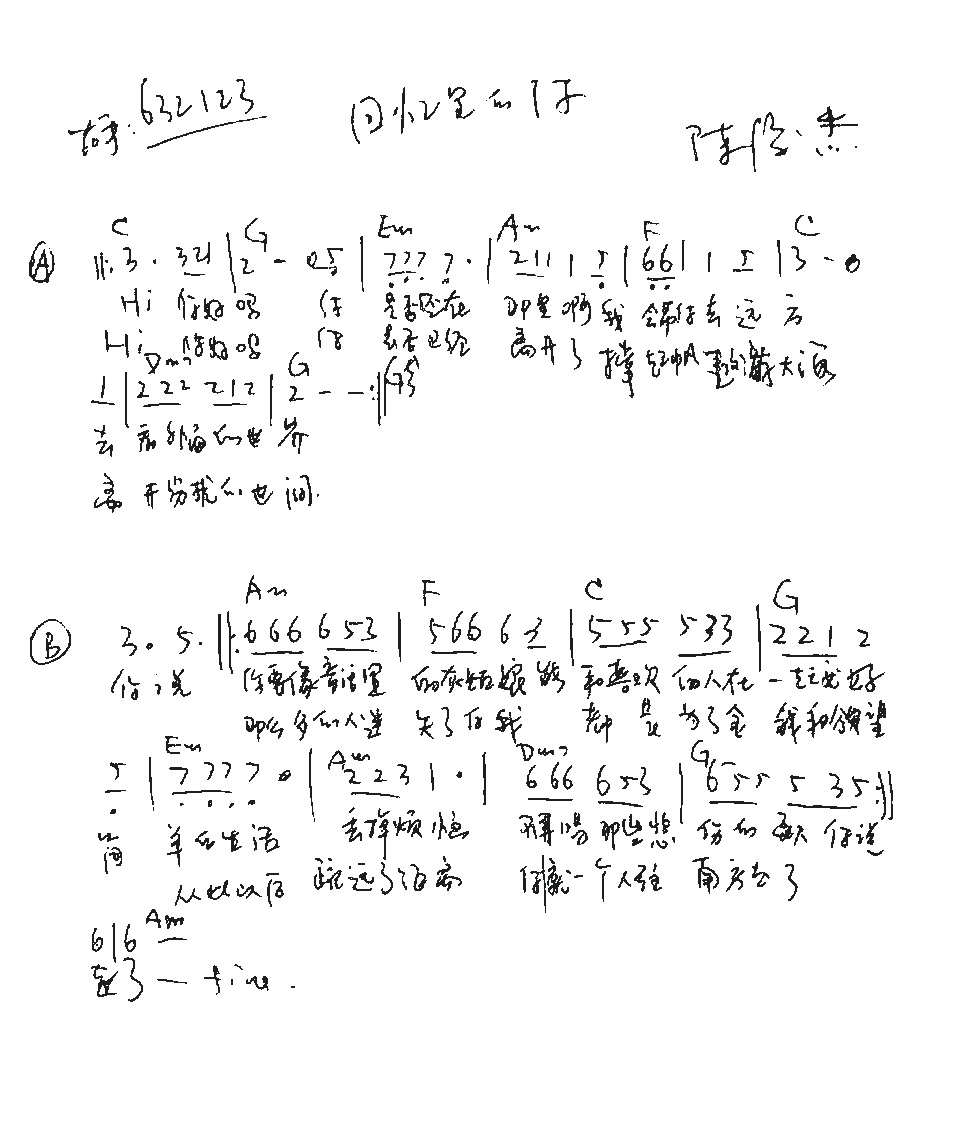 632123 回忆里的
陈 杰
C G Em Am F C
A ||: 3· 321 | 2 - 05 | 777 7· | 211 1 5 | 66 1 1 5 | 3 - 0
Hi 你好吗 你 是否还在 那里啊 我会带你去远方
Hi 你好吗 你 是否已经 离开了 撑起帆 大海
Dm7 G G
1 | 222 212 | 2 - - :|| 5
去看外面的世界
离开 我的世间.
Am F C G
B 3· 5· ||: 666 653 | 566 6 3 | 555 533 | 221 2
你说 你要像童话里 的灰姑娘能 和喜欢的人在一起
那么多的人迷失了自我 都是为了金钱和欲望
Em Am Dm7 G
5 | 777 7 0 | 2231· | 666 653 | 655 5 35 :||
简单的生活 丢掉烦恼 不再唱那些悲伤的 你说
从此以后 疏远了距离 你 一个人往南方去了
Am
6 | 6 —
走了 — fine.